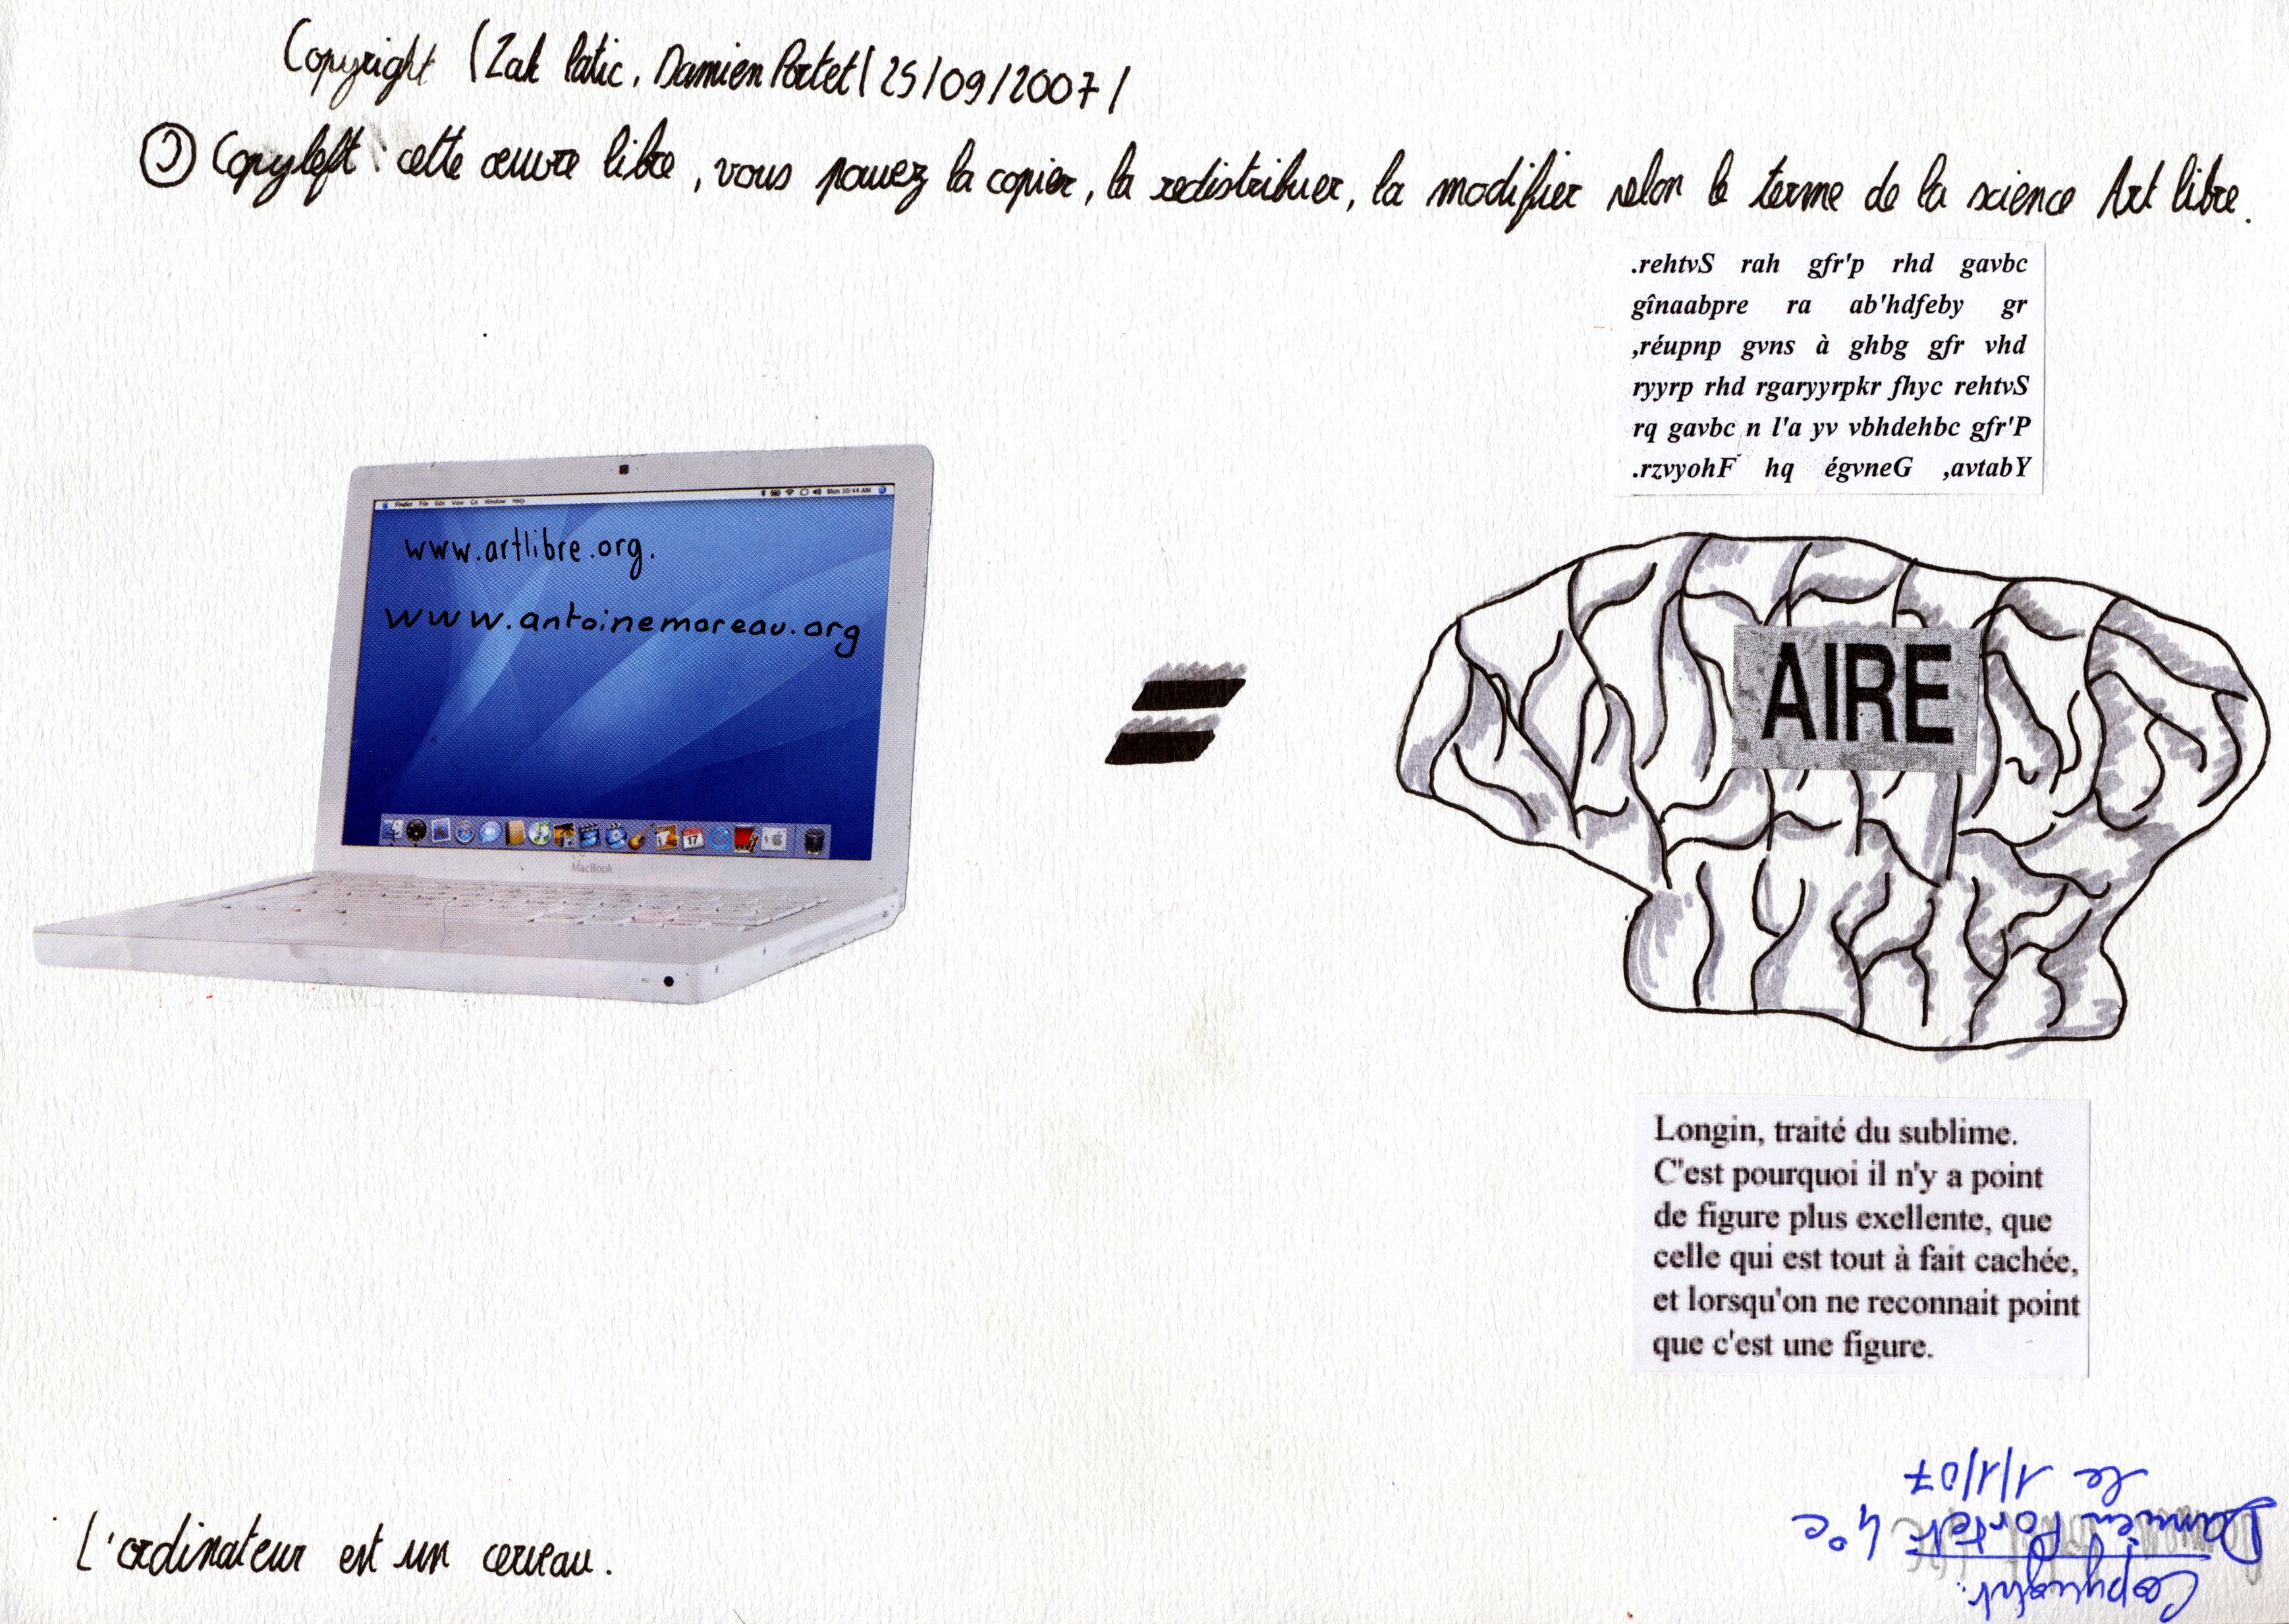 Copyright (Zak latic, Damien Portet / 25/09/2007 /
Copyleft : cette œuvre libre, vous pouvez la copier, la redistribuer, la modifier selon le terme de la science Art libre.
.rehtvS rah gfr'p rhd gavbc
gînaabpre ra ab'hdfeby gr
,réupnp gvns à ghbg gfr vhd
ryyrp rhd rgaryyrpkr fhyc rehtvS
rq gavbc n l'a yv vbhdehbc gfr'P
.rzvyohF hq égvneG ,avtabY
Finder File Edit View Go Window Help Mon 10:44 AM
www.artlibre.org.
www.antoinemoreau.org
17
MacBook
=
AIRE
Longin, traité du sublime.
C'est pourquoi il n'y a point
de figure plus exellente, que
celle qui est tout à fait cachée,
et lorsqu'on ne reconnait point
que c'est une figure.
L'ordinateur est un cerveau.
Copyright:
Damien Portet 4°c
le 1/1/07